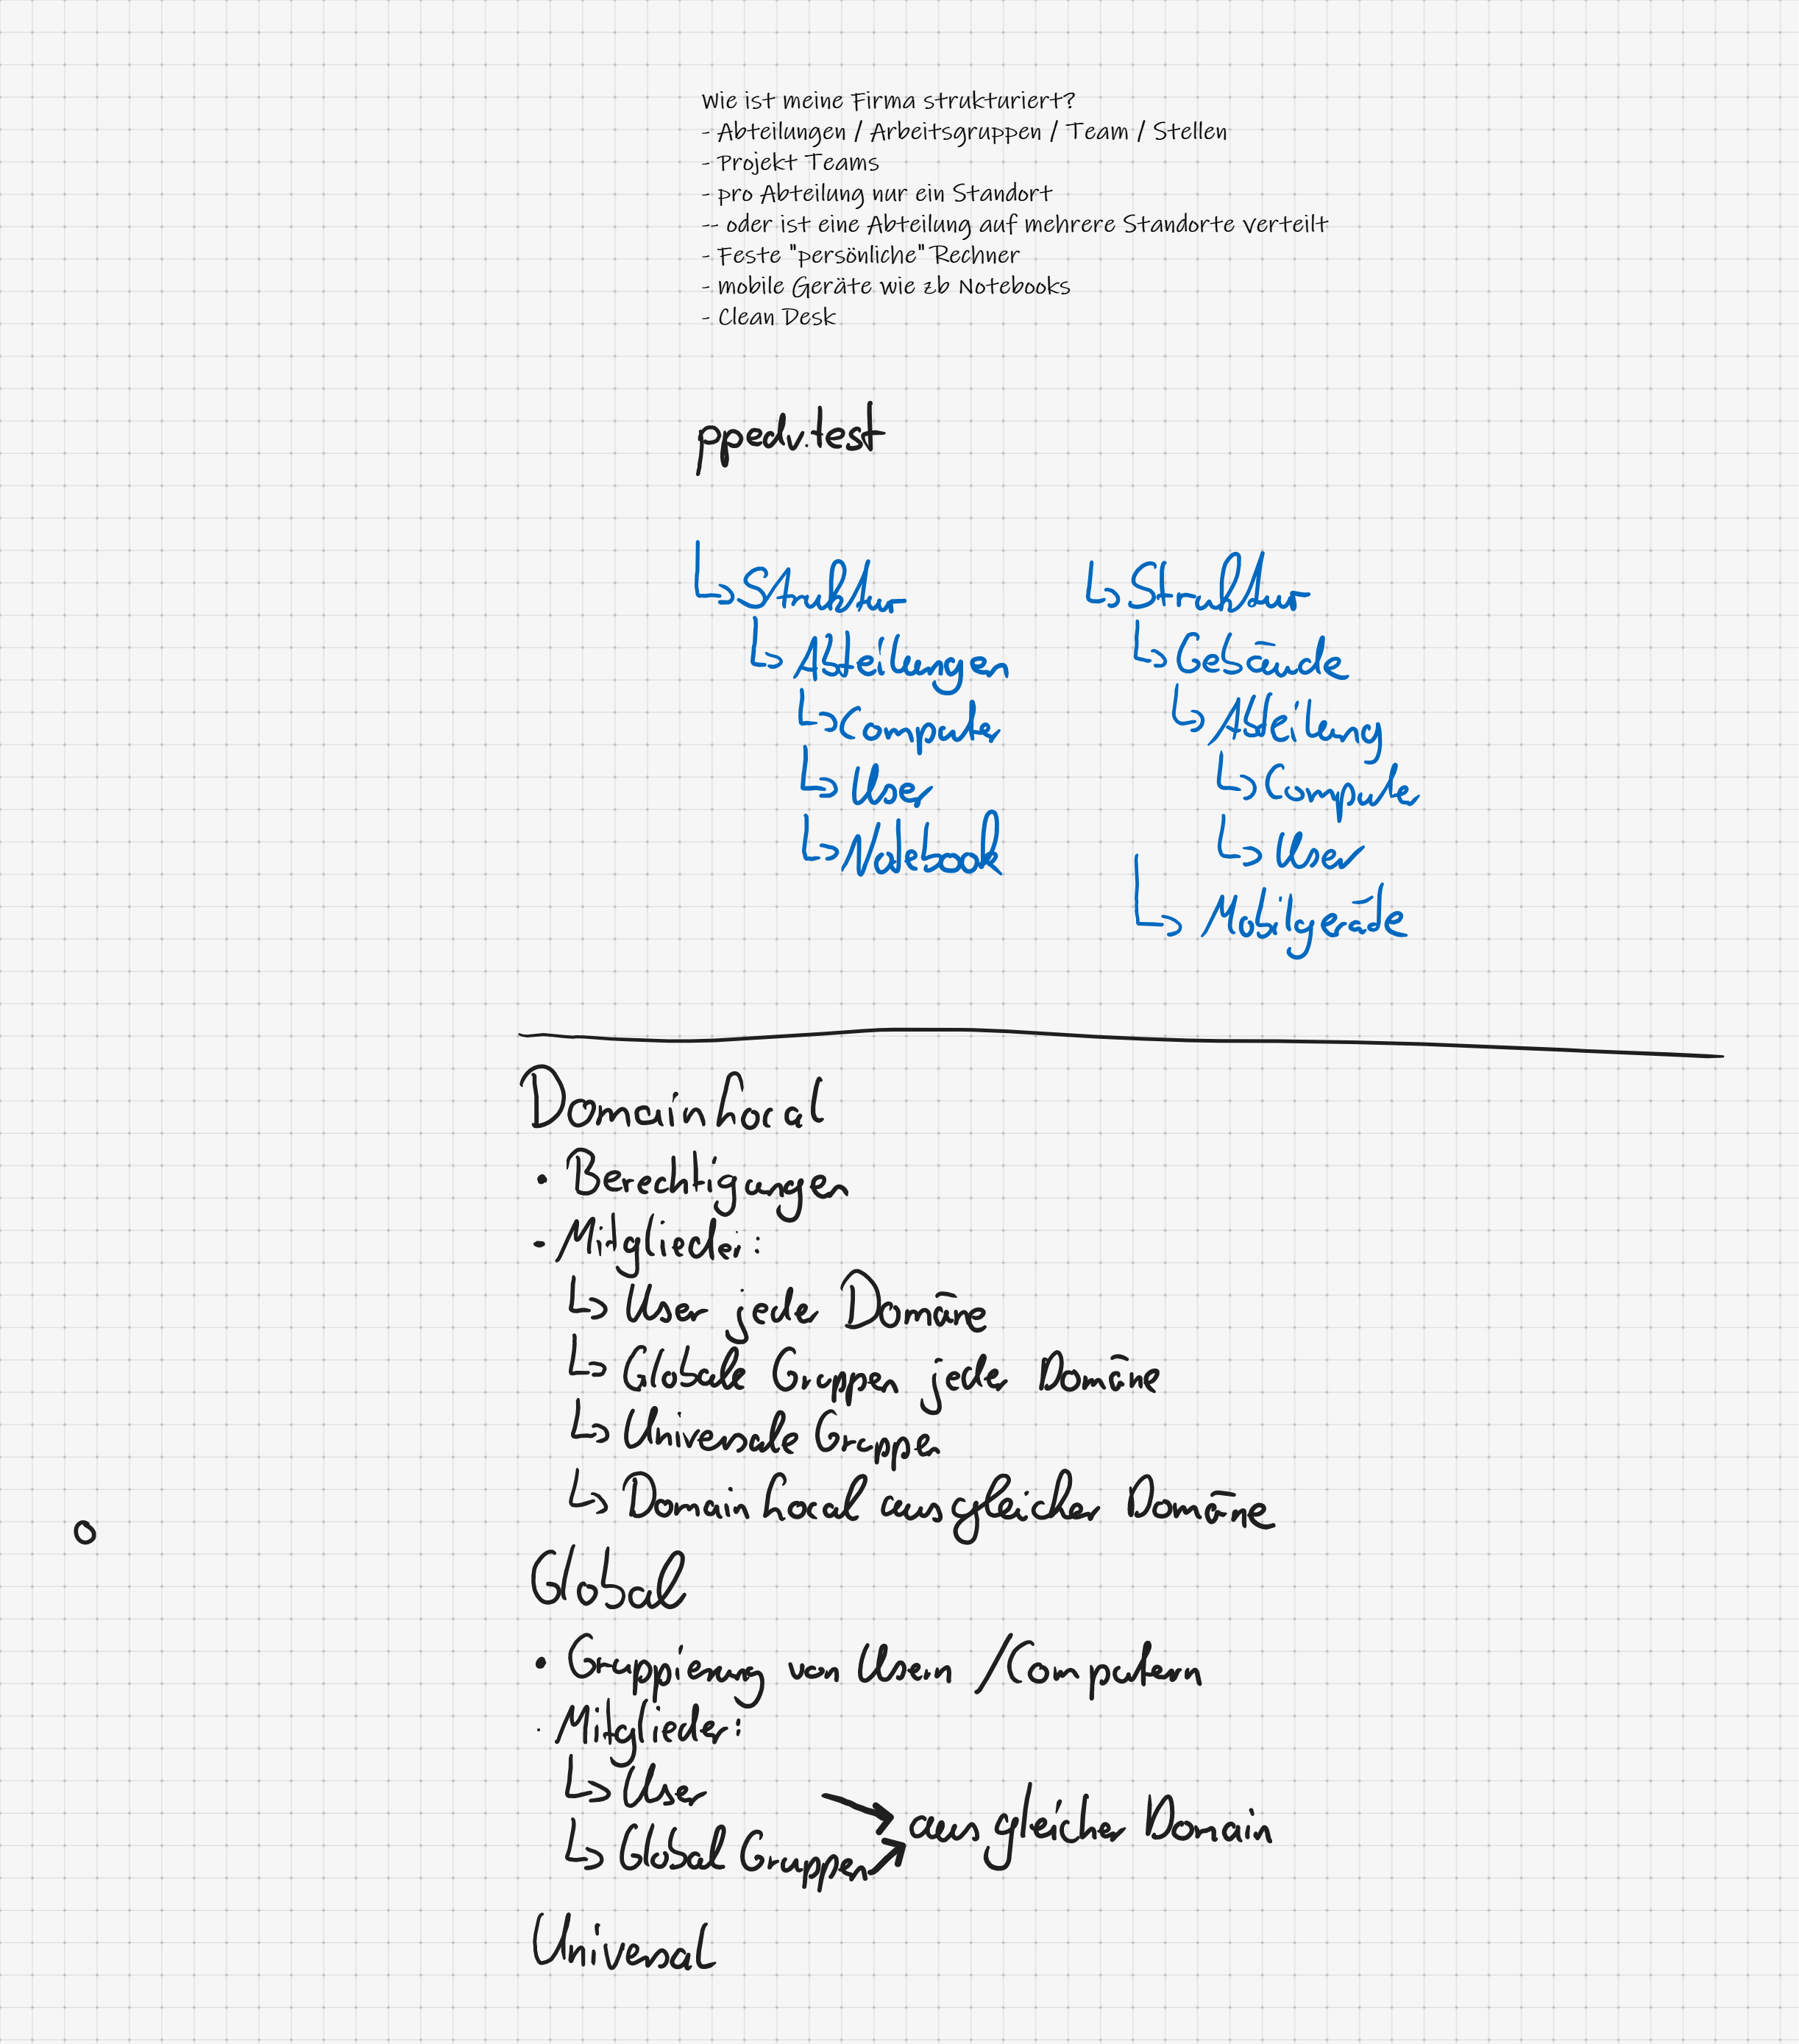 Wie ist meine Firma strukturiert?
- Abteilungen / Arbeitsgruppen / Team / Stellen
- Projekt Teams
- pro Abteilung nur ein Standort
-- oder ist eine Abteilung auf mehrere Standorte verteilt
- Feste "persönliche" Rechner
- mobile Geräte wie zb Notebooks
- Clean Desk
ppedv.test
↳ Struktur
↳ Abteilungen
↳ Computer
↳ User
↳ Notebook
↳ Struktur
↳ Gebäude
↳ Abteilung
↳ Computer
↳ User
↳ Mobilgeräte
Domain Local
• Berechtigungen
- Mitglieder:
↳ User jeder Domäne
↳ Globale Gruppen jeder Domäne
↳ Universale Gruppen
↳ Domain Local aus gleicher Domäne
Global
• Gruppierung von Usern / Computern
· Mitglieder:
↳ User
↳ Global Gruppen
aus gleicher Domain
Universal